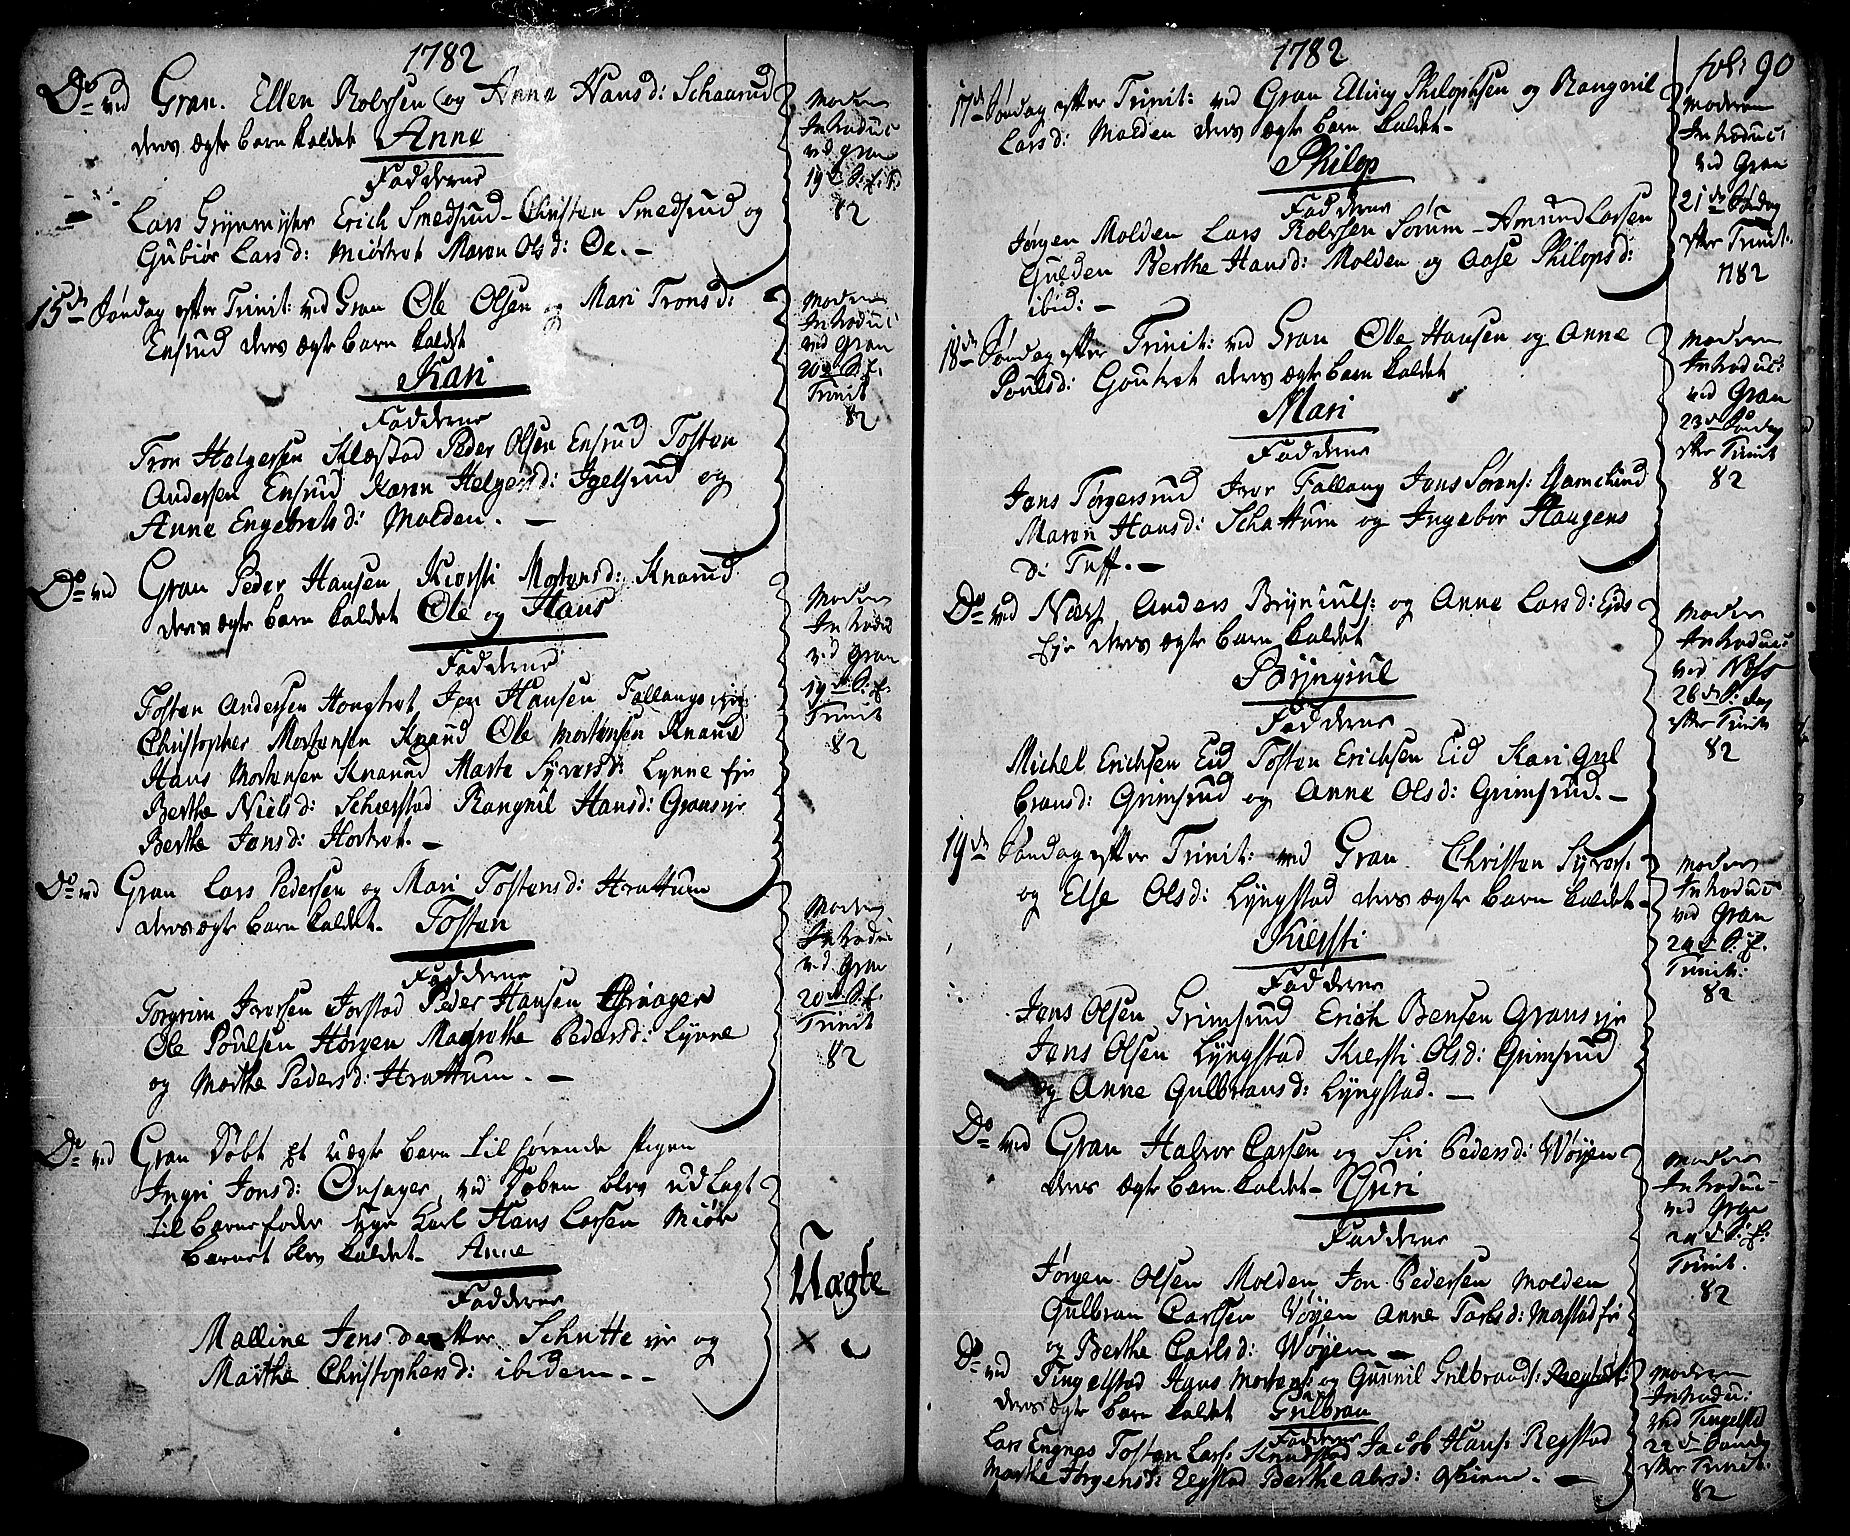 1782
Do ved Gran. Ellen Robersen og Anne Hansd: Schaarud
deres ægte barn kaldet Anne
Fadderne
Lars Grynemyhr Erich Smedsrud Christen Smedsrud og
Gubiør Larsd: Maren Olsd: Oe. -
Moderen
Introduc:
ved Gran
19de S. E. T.
82
15de Søndag efter Trinit: ved Gran Ole Olsen og Mari Tronsd:
Ensrud deres ægte barn kaldet
Kari
Fadderne
Tron Helgesen Klæstad Peder Olsen Ensrud Tosten
Andersen Ensrud Karen Helgesd: Igelsrud og
Anne Engebretsd: Molden. -
Moderen
Introduc:
ved Gran
20de S. E.
Trinit
82
Do ved Gran Peder Hansen Kiersti Mortensd: Knarud
deres ægte barn kaldet Ole og Hans
Fadderne
Tosten Andersen Jon Hansen Fallangs
Christopher Mortensen Knarud Ole Mortensen Knarud
Hans Mortensen Knarud Marte Syversd: Lynne
Berthe Nielsd: Schierstad Rangnil Hansd: Granseje
Berthe Jonsd: Hovtvet. -
Moderen
Introduc
ved Gran
19de S. E.
Trinit
82
Do ved Gran Lars Pedersen og Mari Tostensd: Hvattum
deres ægte barn kaldet - Tosten
Fadderne
Torgrim Iversen Jorstad Peder Hansen
Ole Poulsen Horgen Magrethe Pedersd: Lynne
og Marthe Pedersd: Hvattum. -
Moderen
Introduc:
ved Gran
20de S. E.
Trinit
82
Do ved Gran Døbt et uægte barn tilhørende pigen
Ingri Jonsd: Onsager, ved Døben blev udlagt
til barnefader unge Karl Hans Larsen Miør
Barnet blev kaldet - Anne
Fadderne
Malline Jensdatter Schutte eje og
Marthe Christophersd: ibidem. -
Uægte
1782
fol: 90
17de Søndag efter Trinit: ved Gran Elling Philopsen og Rangnil
Larsd: Molden deres ægte barn kaldet -
Philop
Fadderne
Jørgen Molden Lars Robersen Sørum - Amund Larsen
Gulden Berthe Hansd: Molden og Aase Philopsd:
ibid: -
Moderen
Introduc:
ved Gran
21de Søndag
efter Trinit:
1782
18de Søndag efter Trinit: ved Gran Ole Hansen og Anne
Poulsd: Goutvet deres ægte barn kaldet
Mari
Fadderne
Jens Torgersrud Iver Fallang Jens Sørens:
Maren Hansd: Schattum og Ingebor Haugens
d: Tuff. -
Moderen
Introduc:
ved Gran
23de Søndag
efter Trinit
82
Do ved Næss Anders Bryniuls: og Anne Larsd: Eids
eje deres ægte barn kaldet
Bryngiul
Fadderne
Michel Erichsen Eid Tosten Erichsen Eid Kari Gul
bransd: Grimsrud og Anne Olsd: Grimsrud. -
Moderen
Introduc:
ved Næss
26de S. dag
efter Trinit
82
19de Søndag efter Trinit: ved Gran Christen Syvers:
og Else Olsd: Lyngstad deres ægte barn kaldet -
Kiersti
Fadderne
Jens Olsen Grimsrud Erich Bensen Granseje
Jens Olsen Lyngstad Kiersti Olsd: Grimsrud
og Anne Gulbransd: Lyngstad. -
Moderen
Introduc:
ved Gran
24de S. E.
Trinit:
82
Do ved Gran Halvor Carlsen og Siri Pedersd: Wøyen
deres ægte barn kaldet - Guri
Fadderne
Jørgen Olsen Molden Jon Pedersen Molden
Gulbran Carlsen Wøyen Anne
og Berthe Carlsd: Wøyen -
Moderen
Introduc:
ved Gran
24de S. E:
Trinit.
82
Do ved Tingelstad Hans Mortens: og Gunnil Gulbrands: Regstad
deres ægte barn kaldet Gulbran
Fadderne
Lars Engnæs Tosten Lars: Jacob Hans: Regstad
Marthe Jørgensd: Regstad Berthe -
Moderen
Introduc:
ved Tingelstad
22de Søndag
efter Trinit:
82